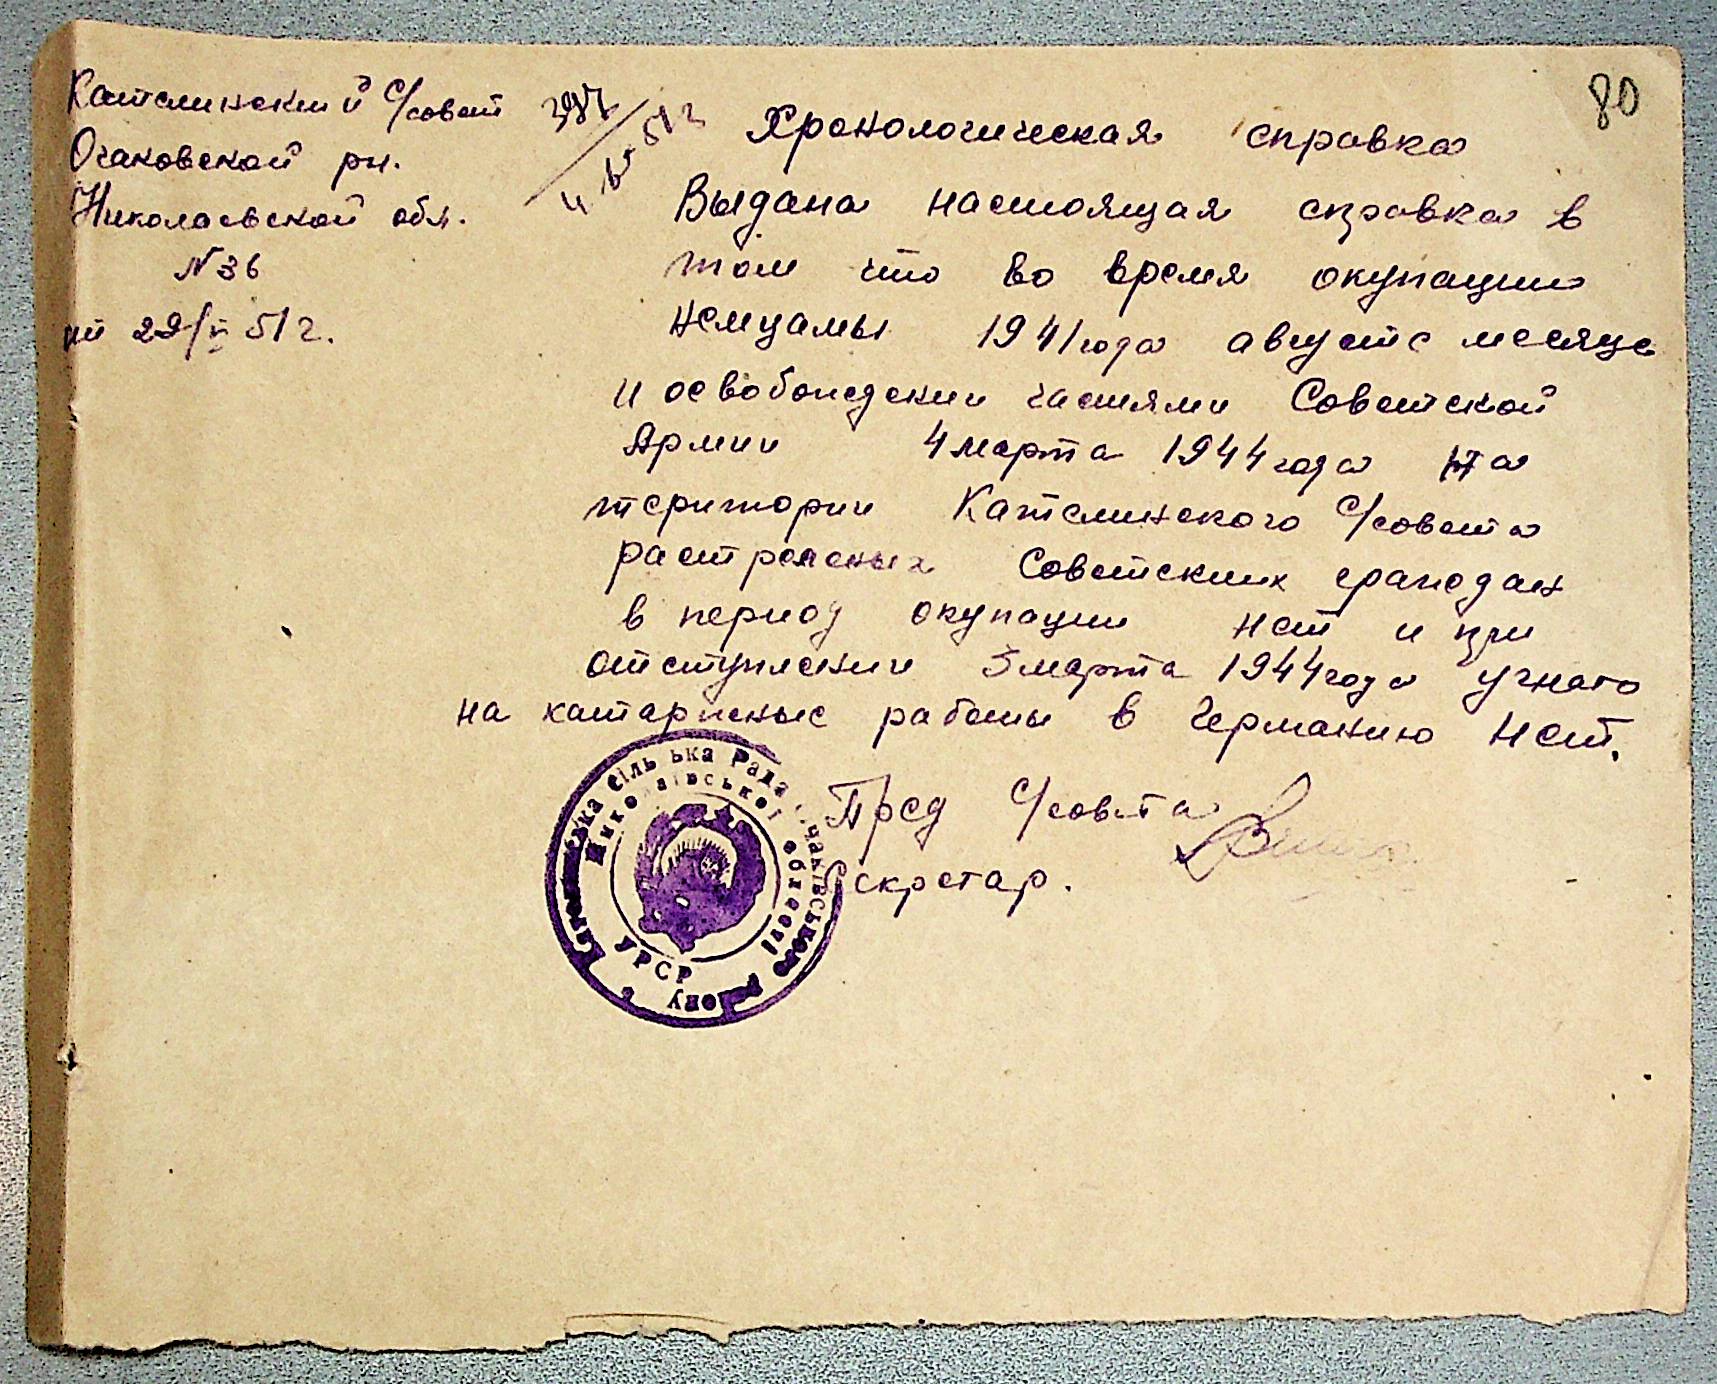 80
Кателинский С/совет
Очаковской рн.
Николаевской обл.
N 36
29/V 51 г.
Хронологическая справка
Выдана настоящая справка в
том что во время окупации
немцамы 1941 года августе месяце
и освобождении частями Советской
Армии 4 марта 1944 года на
територии Кателинского С/совета
растреленых Советских граждан
в период окупации нет и при
отступлении 3 марта 1944 года угнато
на катаржные работы в Германию нет.
Пред С/совта
Секретар.
сільська Рада Очаківського району
Миколаївської області
УРСР